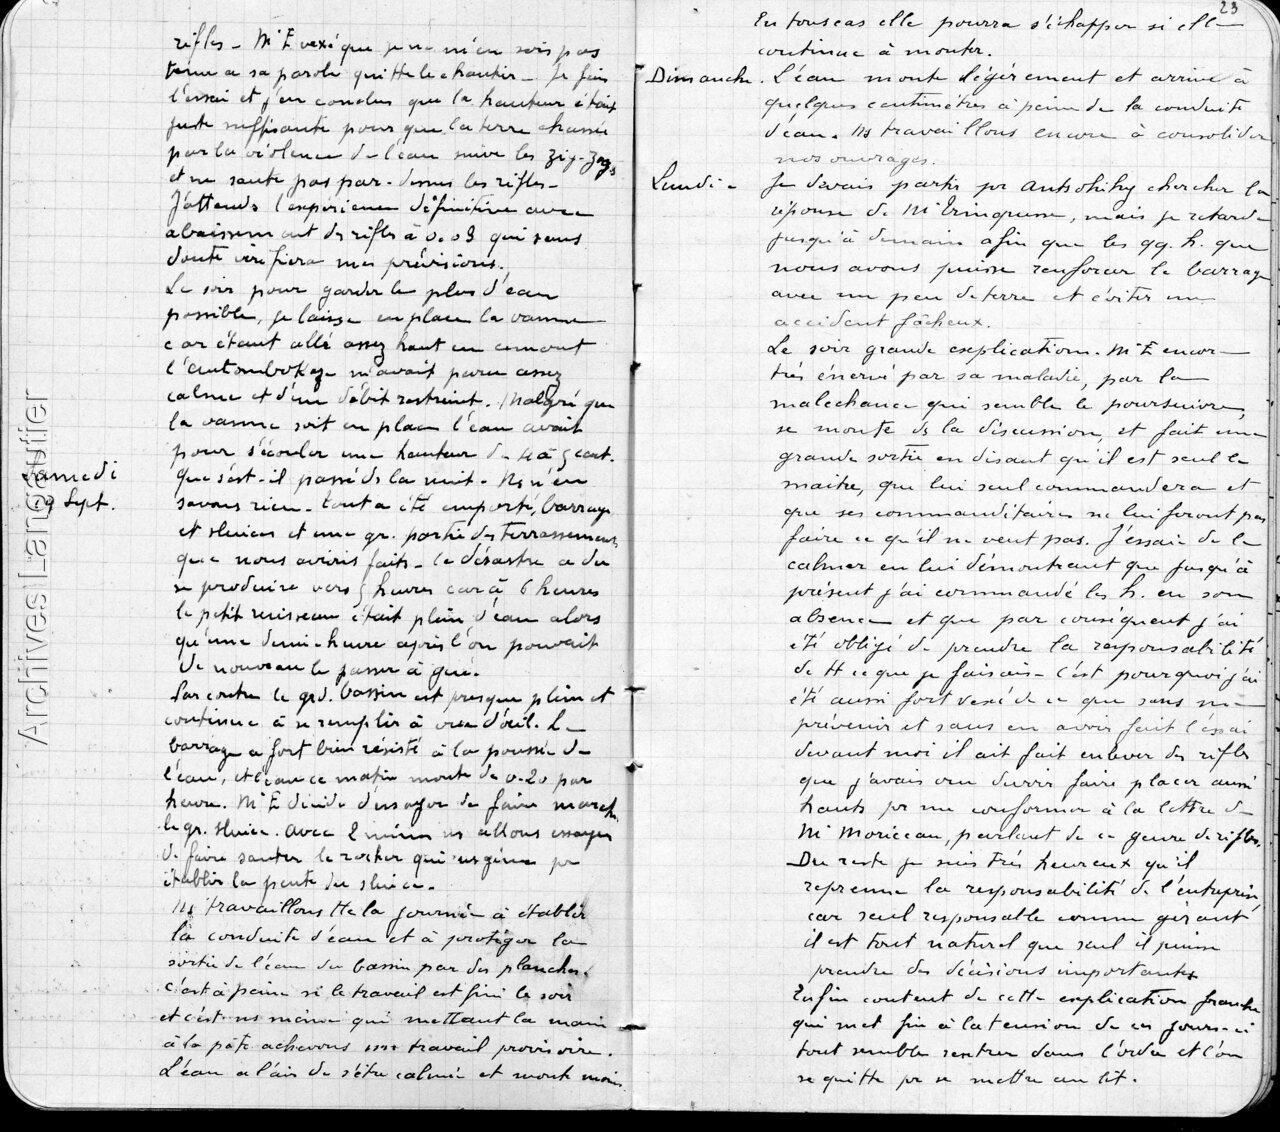 rifles - Mr E vexé que je ne m'en sois pas
tenu a sa parole quitte le chantier - Je fais
l'essai et j'en conclus que la hauteur était
juste suffisante pour que la terre chassée
par la violence de l'eau suive les zig-zags
et ne saute pas par-dessus les rifles -
J'attends l'expérience définitive avec
abaissement des rifles à 0.03 qui sans
doute vérifiera mes prévisions.
Le soir pour garder le plus d'eau
possible, je laisse en place la vanne
car étant allé assez haut en amont
l'Antsmbokag m'avait paru assez
calme et d'un débit restreint. Malgré que
la vanne soit en place l'eau avait
pour s'écouler une hauteur de 4 à 5 cent.
Samedi
9 Sept.
Que s'est-il passé ds la nuit - Ns n'en
savons rien - tout a été emporté, barrage
et sluices et une gr. partie des terrassements
que nous avions faits - le désastre a du
se produire vers 5 heures car à 6 heures
le petit ruisseau était plein d'eau alors
qu'une demi-heure après l'on pouvait
de nouveau le passer à gué.
Par contre le grd. bassin est presque plein et
continue à se remplir à vue d'oeil. Le
barrage a fort bien résisté à la poussée de
l'eau, et l'eau ce matin monte de 0.20 par
heure. Mr E décide d'essayer de faire march.
le gr. sluice. Avec 2 mines ns allons essayer
de faire sauter le rocher qui ns gêne pr
établir la pente du sluice.
Ns travaillons tte la journée à établir
la conduite d'eau et à protéger la
sortie de l'eau du bassin par des planches.
C'est à peine si le travail est fini le soir
et c'est ns même qui mettant la main
à la pâte achevons un travail provisoire.
L'eau a l'air de s'être calmée et monte moins
23
En tous cas elle pourra s'échapper si elle
continue à monter.
Dimanche. L'eau monte légèrement et arrive à
quelques centimètres à peine de la conduite
d'eau. Ns travaillons encore à consolider
nos ouvrages.
Lundi - Je devais partir pr Antsohihy chercher la
réponse de Mr Eringusse, mais je retarde
jusqu'à demain afin que les qq. h. que
nous avons puisse renforcer le barrage
avec un peu de terre et éviter un
accident fâcheux.
Le soir grande explication. Mr E encore
très énervé par sa maladie, par la
malechance qui semble le poursuivre,
se monte ds la discussion, et fait une
grande sortie en disant qu'il est seul le
maître, que lui seul commandera et
que ses commanditaires ne lui feront pas
faire ce qu'il ne veut pas. J'essaie de le
calmer en lui démontrant que jusqu'à
présent j'ai commandé les h. en son
absence et que par conséquent j'ai
été obligé de prendre la responsabilité
de tt ce que je faisais - C'est pourquoi j'ai
été aussi fort vexé de ce que sans me
prévenir et sans en avoir fait l'essai
devant moi il ait fait enlever des rifles
que j'avais cru devoir faire placer aussi
hauts pr me conformer à la lettre de
Mr Moriceau, parlant de ce genre de rifles.
Du reste je suis très heureux qu'il
reprenne la responsabilité de l'entreprise
car seul responsable comme gérant
il est tout naturel que seul il puisse
prendre des décisions importantes
Enfin content de cette explication franche
qui met fin à la tension de ces jours-ci
tout semble rentrer dans l'ordre et l'on
se quitte pr se mettre au lit.
Archives Langautier